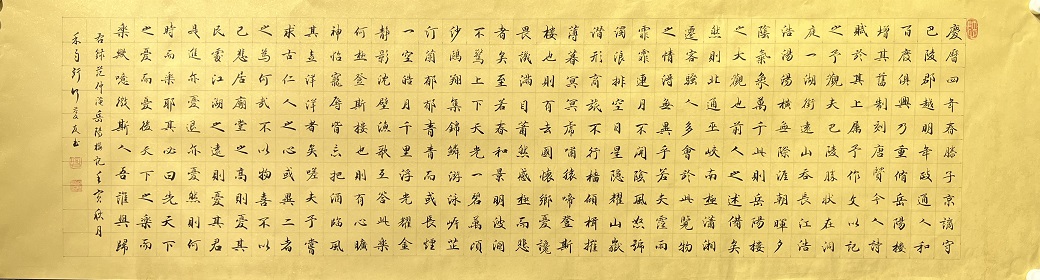 慶曆四年春滕子京謫守
巴陵郡越明年政通人和
百廢俱興乃重脩岳陽樓
增其舊制刻唐賢今人詩
賦於其上屬予作文以記
之予觀夫巴陵勝狀在洞
庭一湖銜遠山吞長江浩
浩湯湯橫無際涯朝暉夕
陰氣象萬千此則岳陽樓
之大觀也前人之述備矣
然則北通巫峽南極瀟湘
遷客騷人多會於此覽物
之情得無異乎若夫霪雨
霏霏連月不開陰風怒號
濁浪排空日星隱耀山嶽
潛形商旅不行檣傾楫摧
薄暮冥冥虎嘯猿啼登斯
樓也則有去國懷鄉憂讒
畏譏滿目蕭然感極而悲
者矣至若春和景明波瀾
不驚上下天光一碧萬頃
沙鷗翔集錦鱗游泳岸芷
汀蘭郁郁青青而或長煙
一空皓月千里浮光耀金
靜影沈璧漁歌互答此樂
何極登斯樓也則有心曠
神怡寵辱皆忘把酒臨風
其喜洋洋者矣嗟夫予嘗
求古仁人之心或異二者
之為何哉不以物喜不以
己悲居廟堂之高則憂其
民處江湖之遠則憂其君
是進亦憂退亦憂然則何
時而樂耶其必曰先天下
之憂而憂後天下之樂而
樂歟噫微斯人吾誰與歸
右錄范仲淹岳陽樓記壬寅秋月
書